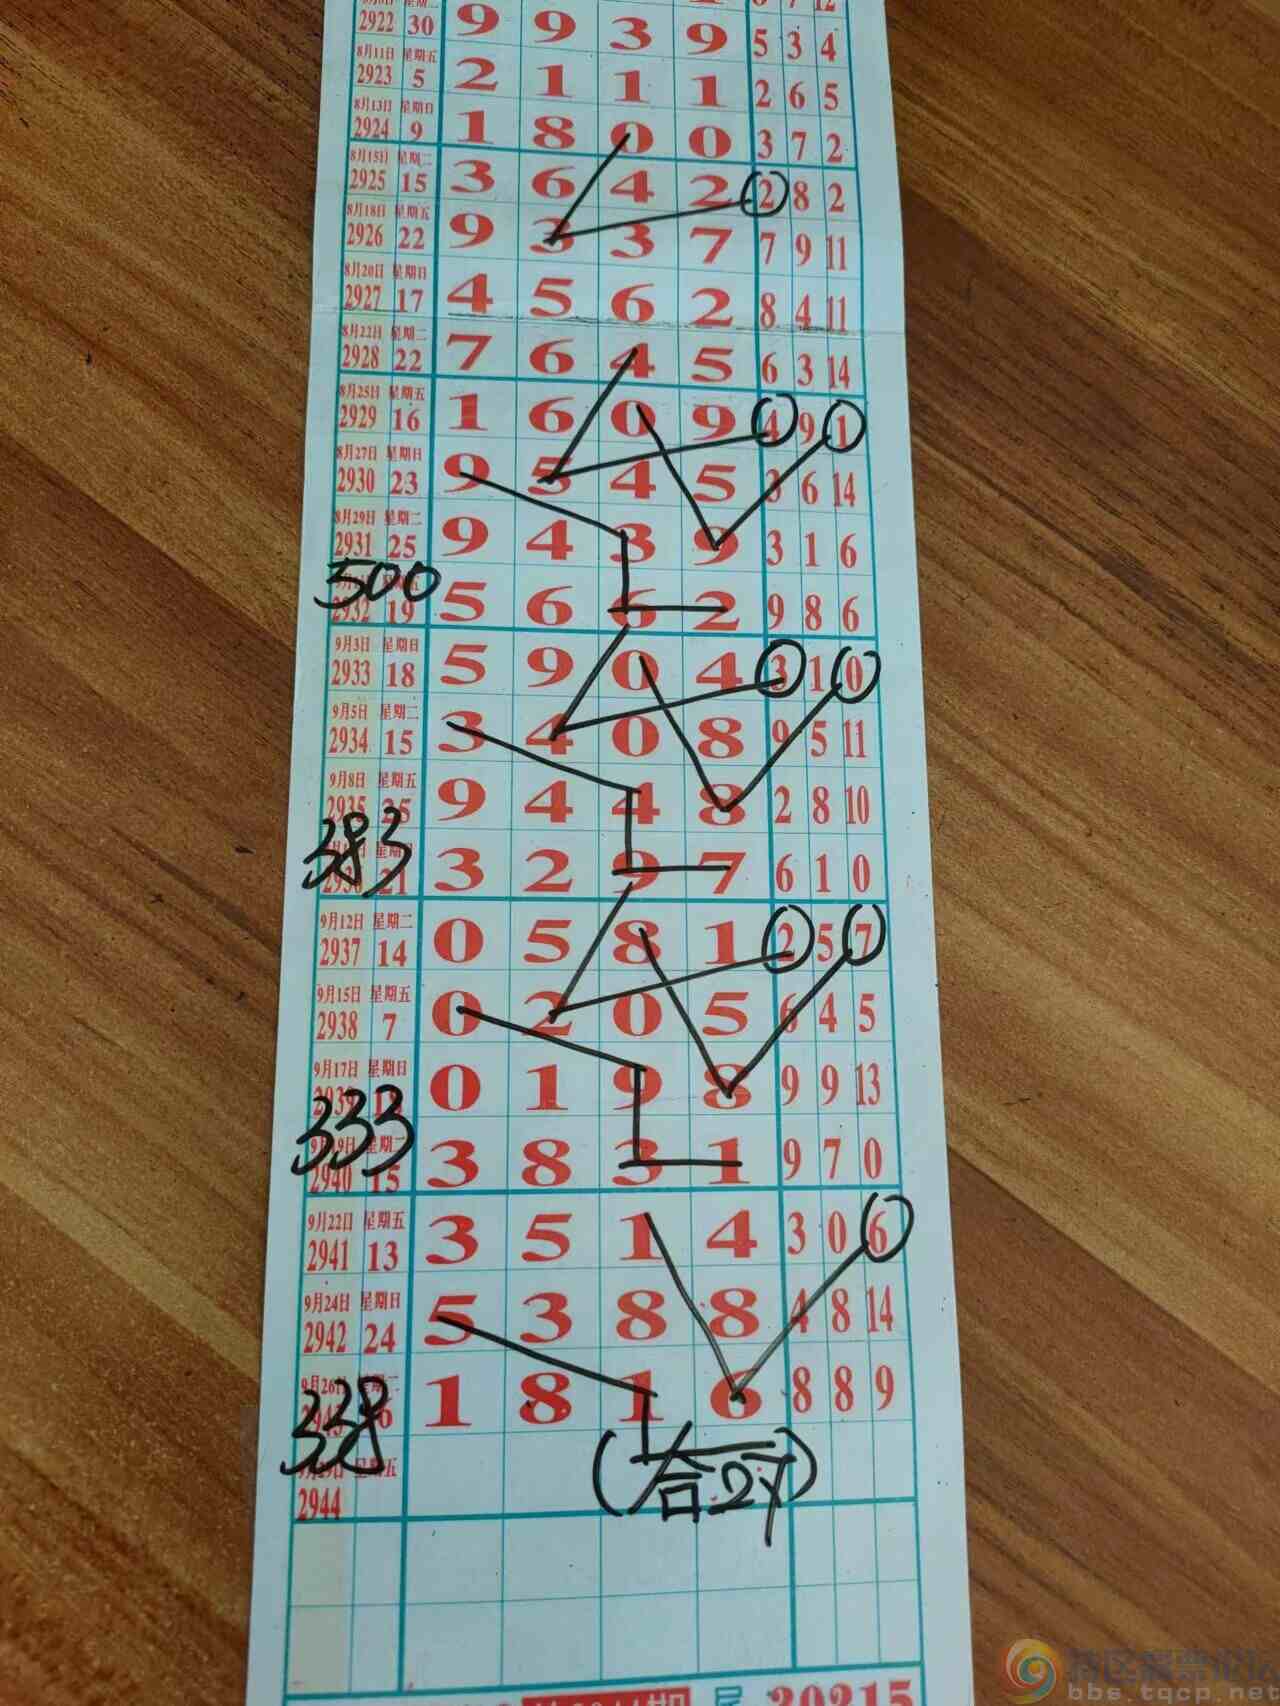 2922 30 9 9 3 9 5 3 4
8月11日 星期五
2923 5 2 1 1 1 2 6 5
8月13日 星期日
2924 9 1 8 0 0 3 7 2
8月15日 星期二
2925 15 3 6 4 2 2 8 2
8月18日 星期五
2926 22 9 3 3 7 7 9 11
8月20日 星期日
2927 17 4 5 6 2 8 4 11
8月22日 星期二
2928 22 7 6 4 5 6 3 14
8月25日 星期五
2929 16 1 6 0 9 4 9 1
8月27日 星期日
2930 23 9 5 4 5 3 6 14
8月29日 星期二
2931 25 9 4 3 9 3 1 6
500
2932 19 5 6 6 2 9 8 6
9月3日 星期日
2933 18 5 9 0 4 3 1 0
9月5日 星期二
2934 15 3 4 0 8 9 5 11
9月8日 星期五
2935 25 9 4 4 8 2 8 10
383
2936 21 3 2 9 7 6 1 0
9月12日 星期二
2937 14 0 5 8 1 2 5 7
9月15日 星期五
2938 7 0 2 0 5 6 4 5
9月17日 星期日
2939 0 1 9 8 9 9 13
333
9月19日 星期二
2940 15 3 8 3 1 9 7 0
9月22日 星期五
2941 13 3 5 1 4 3 0 6
9月24日 星期日
2942 24 5 3 8 8 4 8 14
9月26日 星期二
2943 16 1 8 1 6 8 8 9
338
9月29日 星期五
2944
(合27)
20215
bbs.tqcp.net